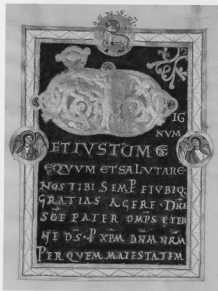 IG
NUM
ET IUSTUM E
EQUUM ET SALUTARE
NOS TIBI SEMP ET UBIQ
GRATIAS AGERE DNE
SCE PATER OMPS ETER
NE DS P XPM DNM NRM
PER QUEM MAIESTATEM